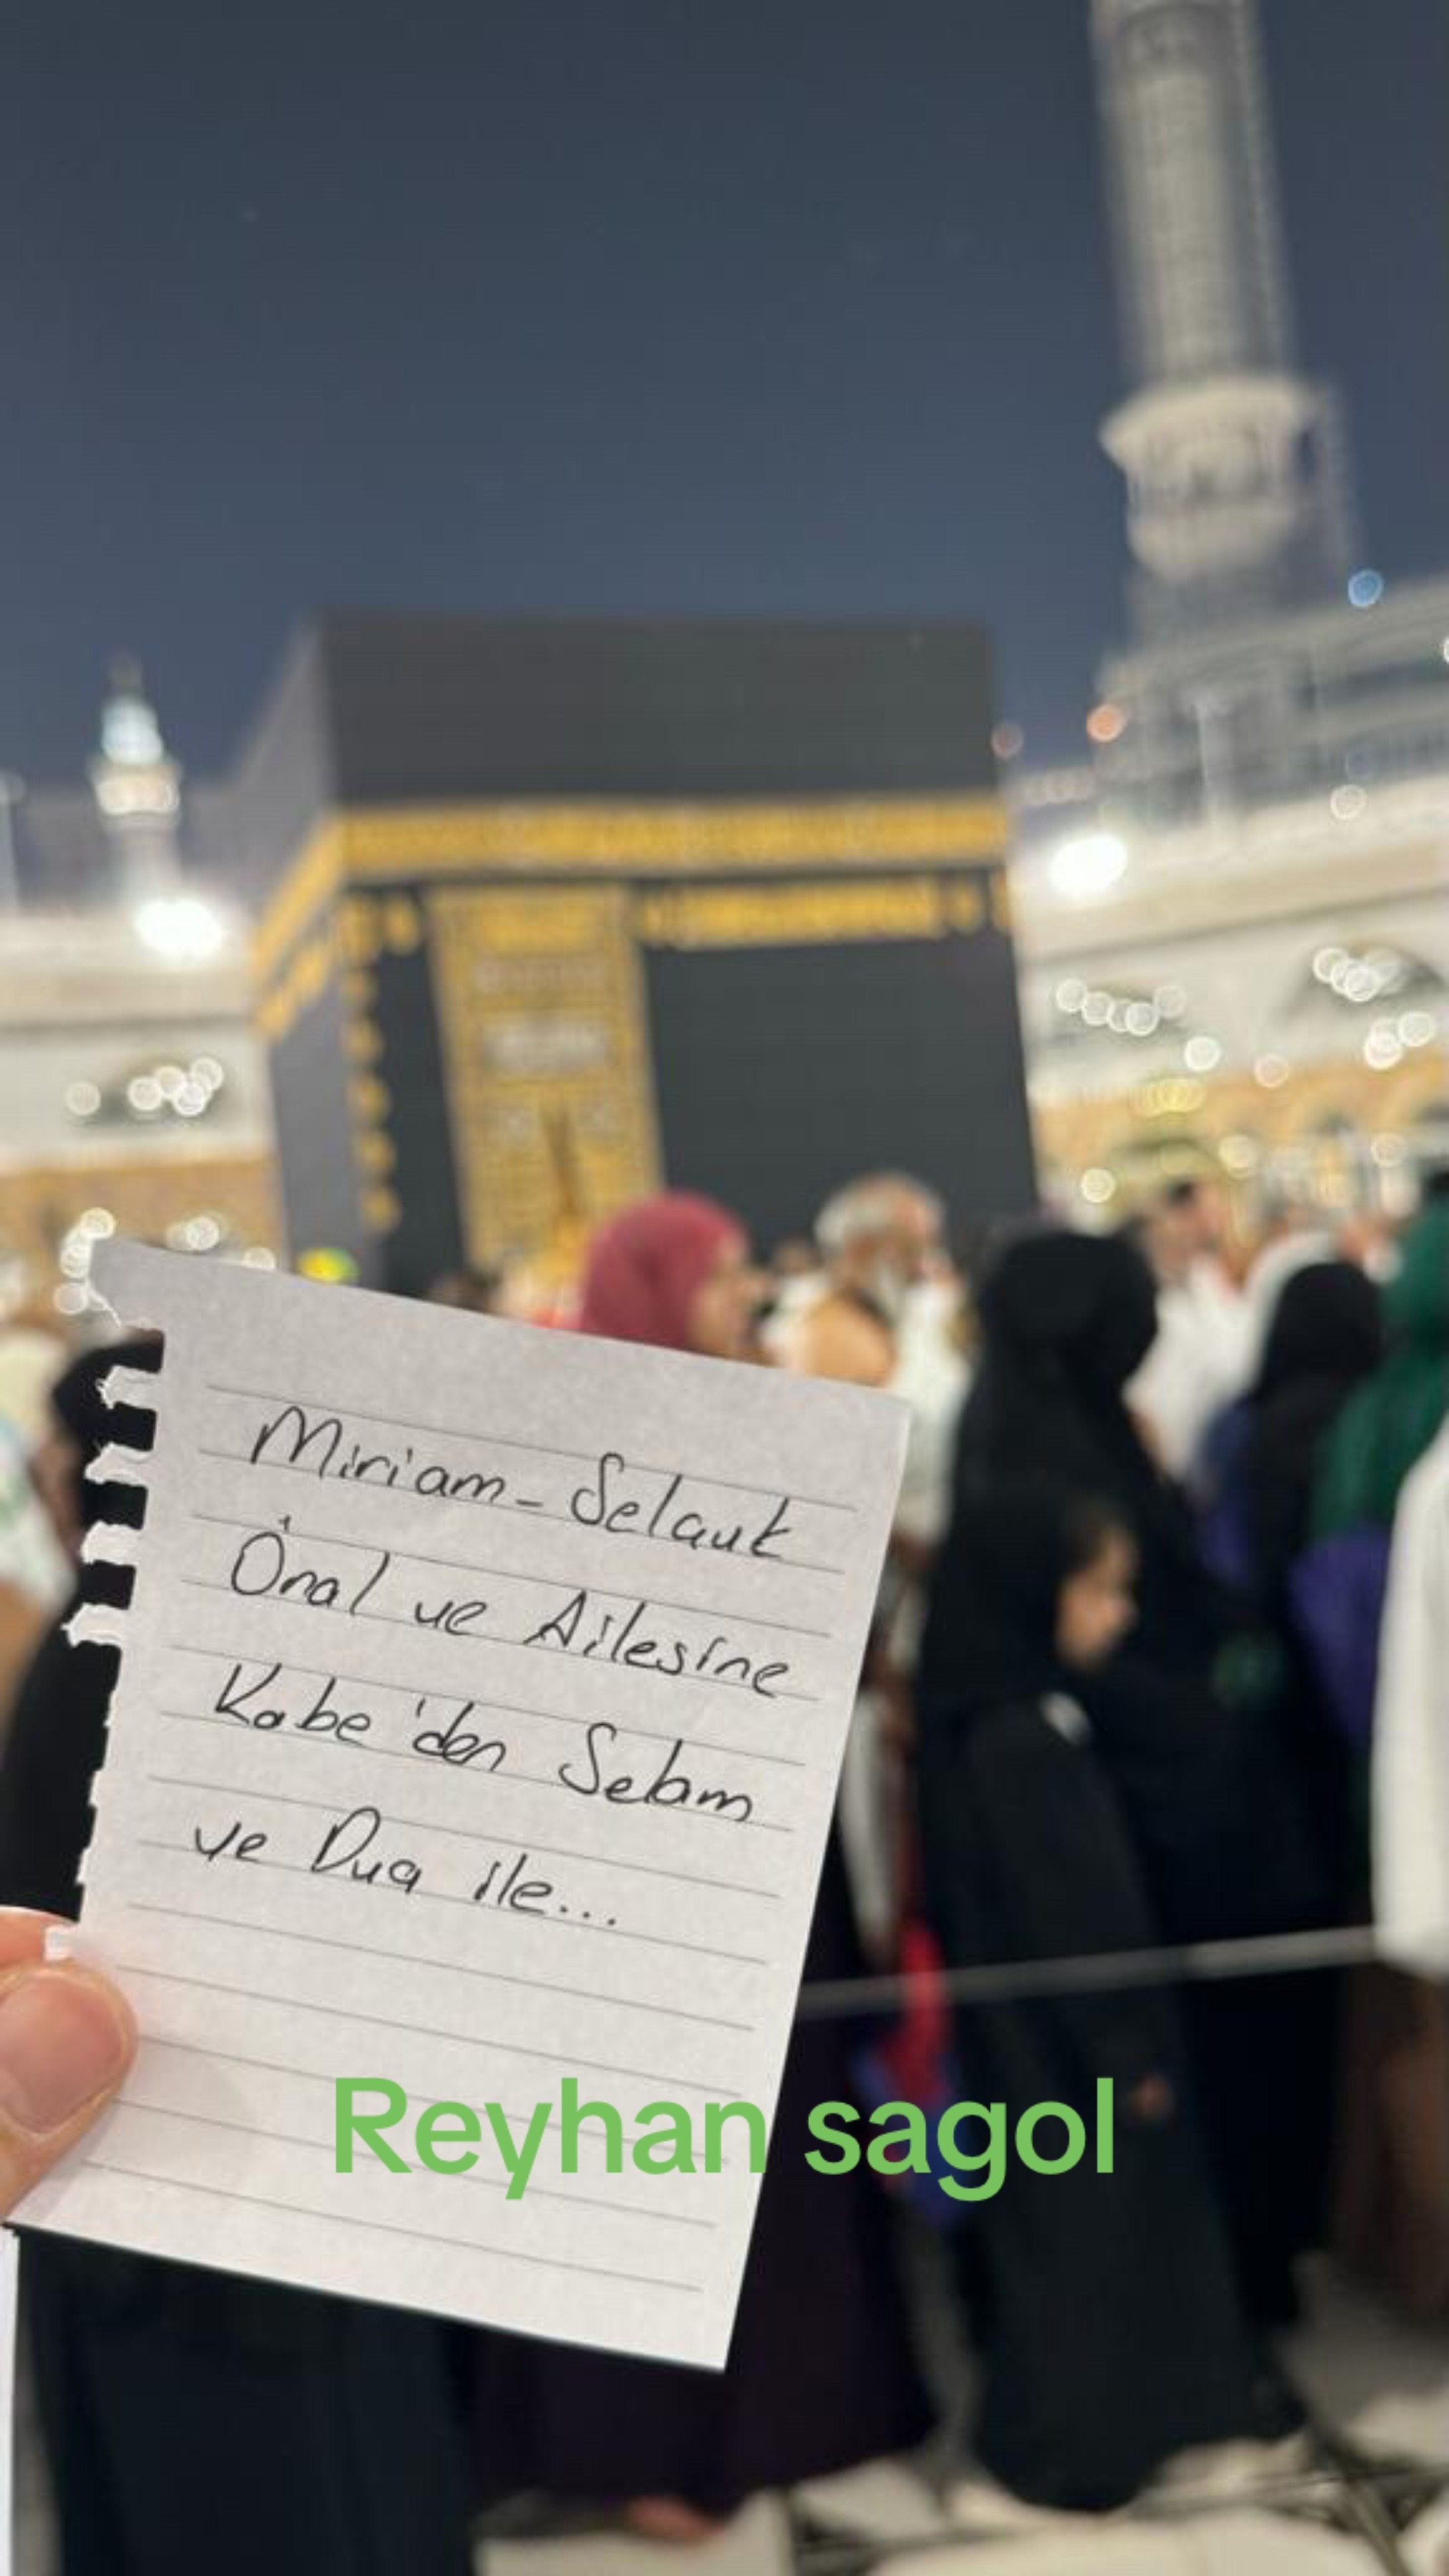 Miriam - Selaut
Önal ve Ailesine
Kabe'den Selam
ve Dua ile...
Reyhan sagol